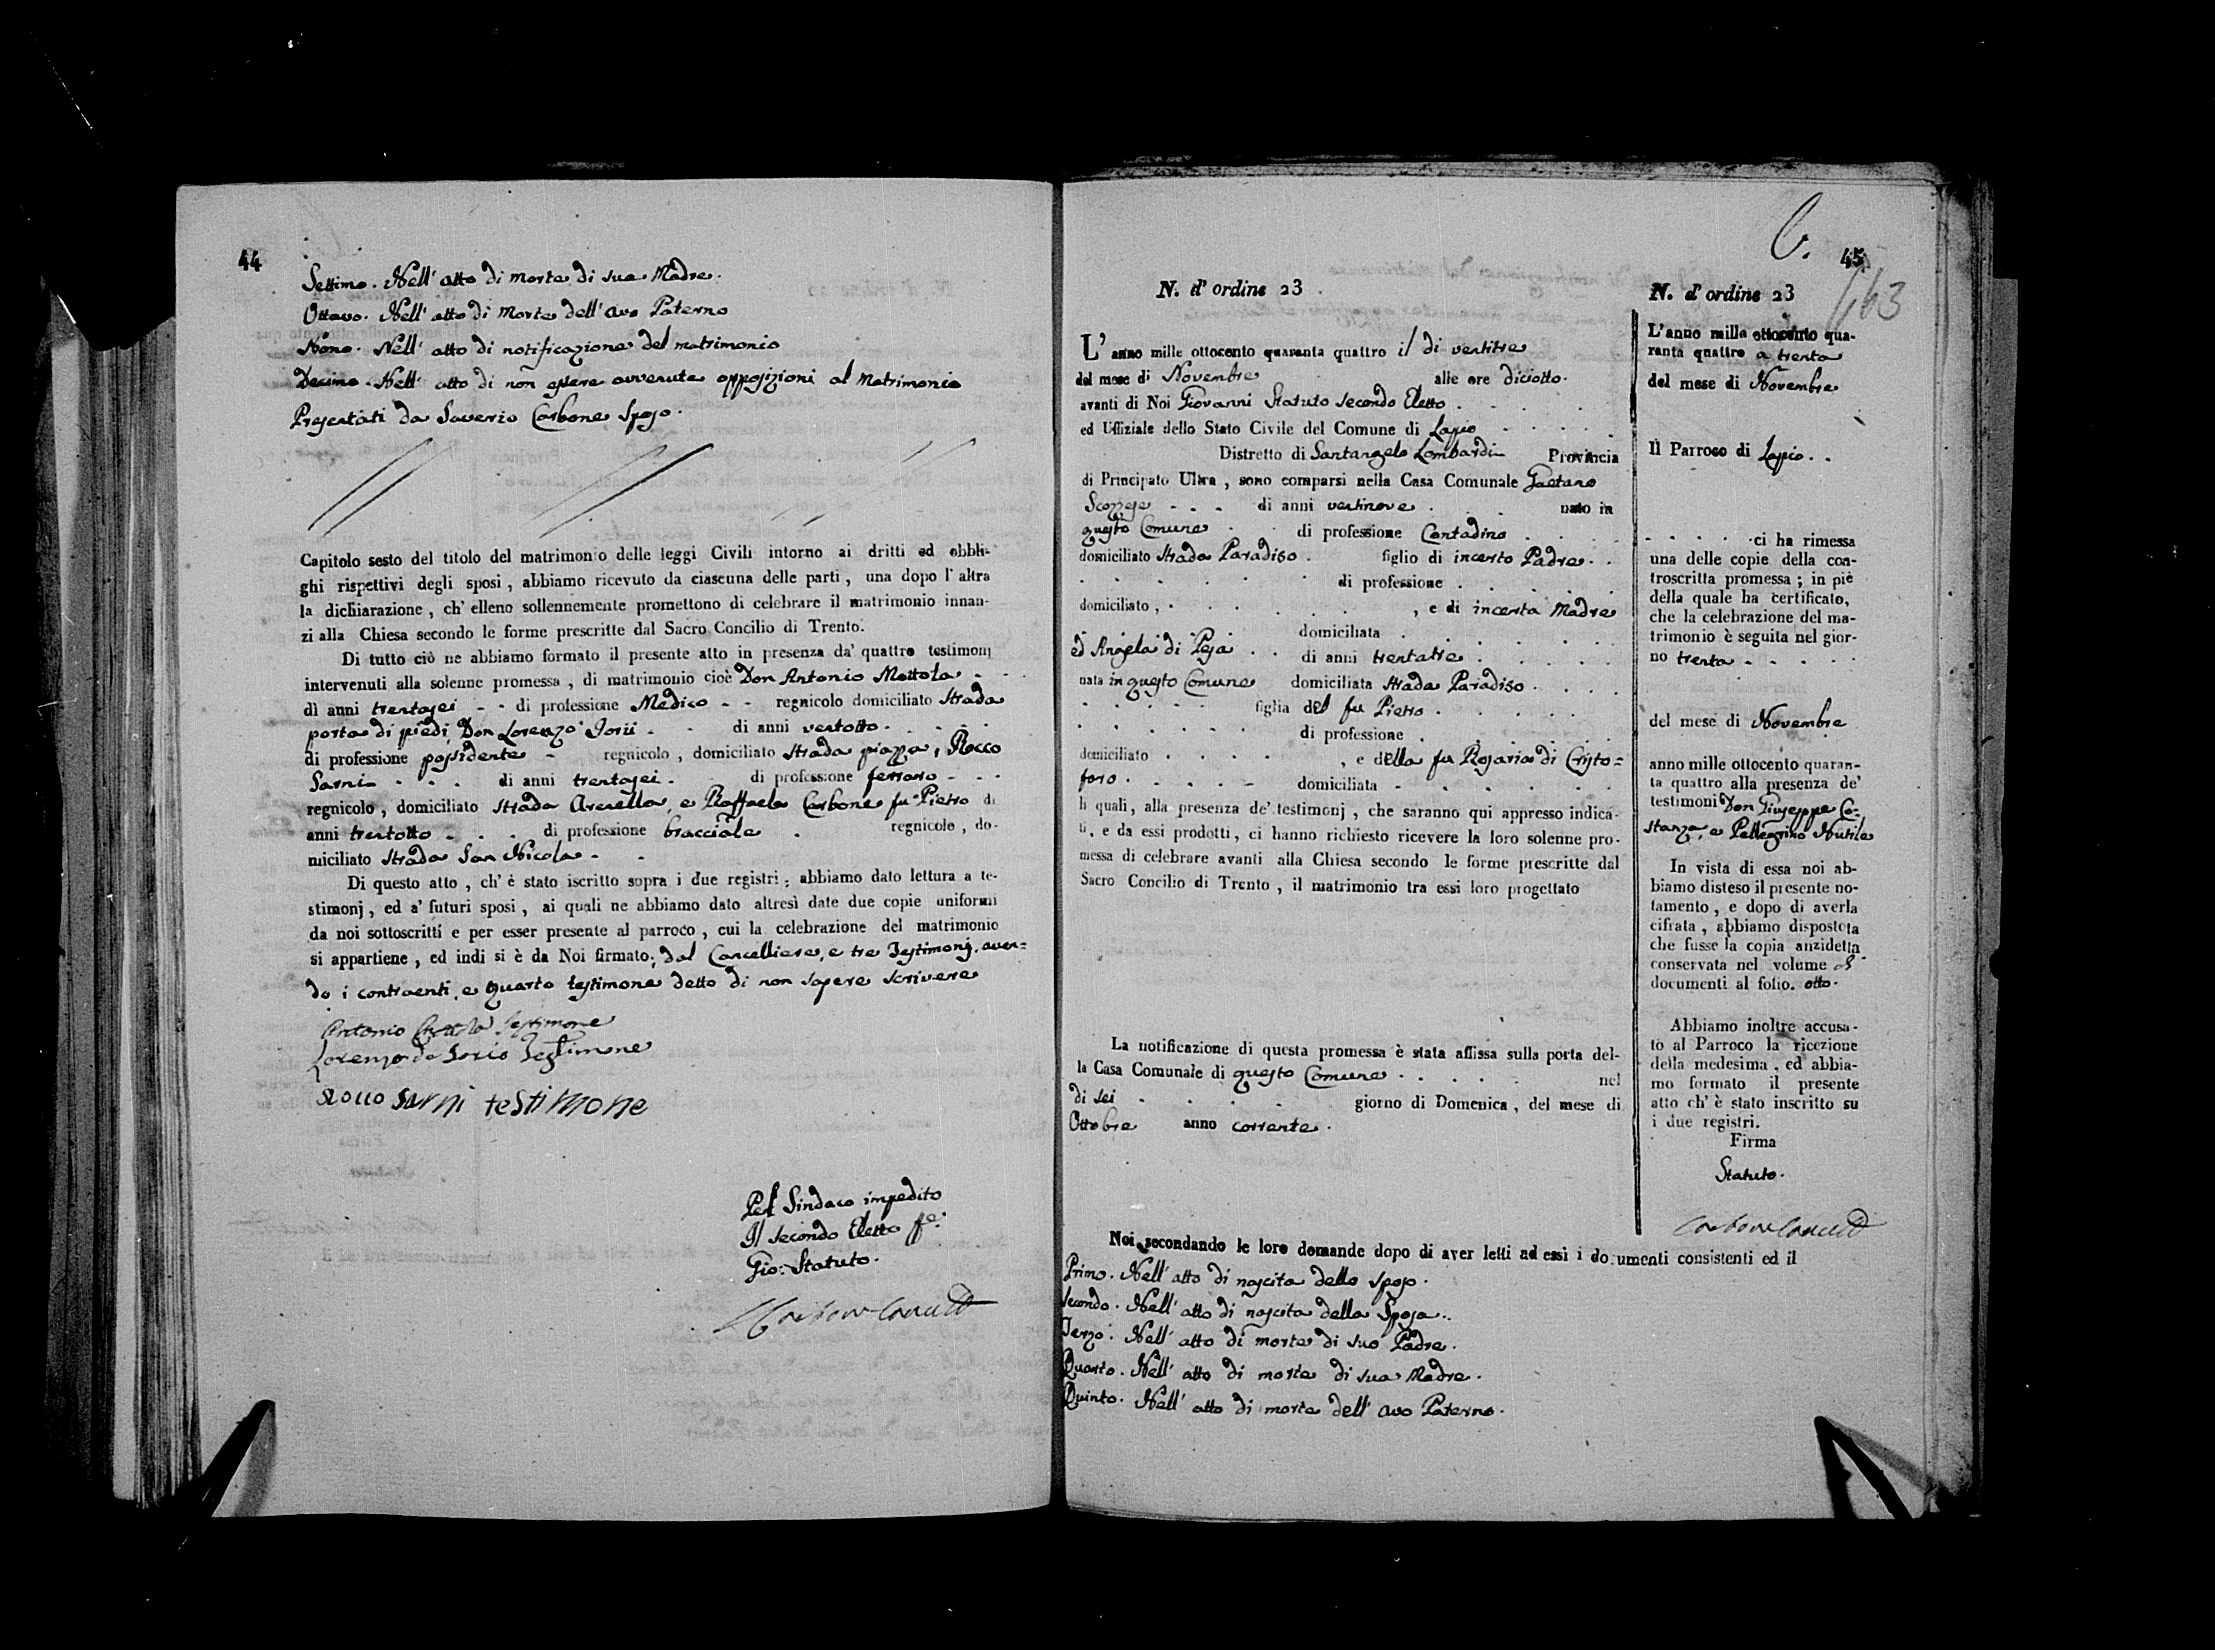 44
Settimo. Nell' atto di morte di sua Madre.
Ottavo. Nell' atto di morte dell' avo Paterno
Nono. Nell' atto di notificazione del matrimonio
Decimo. Nell' atto di non essere avvenute opposizioni al Matrimonio
Presentati da Saverio Carbone Sposo.
Capitolo sesto del titolo del matrimonio delle leggi Civili intorno ai dritti ed obbli-
ghi rispettivi degli sposi, abbiamo ricevuto da ciascuna delle parti, una dopo l'altra
la dichiarazione, ch' elleno sollennemente promettono di celebrare il matrimonio innan-
zi alla Chiesa secondo le forme prescritte dal Sacro Concilio di Trento.
Di tutto ciò ne abbiamo formato il presente atto in presenza da' quattro testimonj
intervenuti alla solenne promessa, di matrimonio cioè Don Antonio Mottola
di anni trentasei di professione Medico regnicolo domiciliato Strada
porta di piedi, Don Lorenzo Iorii di anni ventotto
di professione possidente regnicolo, domiciliato Strada piazza, Rocco
Sarni di anni trentasei di professione ferraro
regnicolo, domiciliato Strada Arenella, e Raffaele Carbone fu Pietro di
anni trentotto di professione bracciale regnicolo, do-
miciliato Strada San Nicola
Di questo atto, ch' è stato iscritto sopra i due registri; abbiamo dato lettura a te-
stimonj, ed a' futuri sposi, ai quali ne abbiamo dato altresì date due copie uniformi
da noi sottoscritti e per esser presente al parroco, cui la celebrazione del matrimonio
si appartiene, ed indi si è da Noi firmato, dal Cancelliere, e tre Testimonj, aven-
do i contraenti, e quarto testimone detto di non sapere scrivere
Antonio Mottola testimone
Lorenzo de Iorio Testimone
Rocco Sarni testimone
Pel Sindaco impedito
Il secondo Eletto ff.
Gio: Statuto.
45
163
N. d' ordine 23
L' anno mille ottocento quaranta quattro il di ventitre
del mese di Novembre alle ore diciotto.
avanti di Noi Giovanni Statuto Secondo Eletto
ed Uffiziale dello Stato Civile del Comune di Lapio
Distretto di Santangelo Lombardi Provincia
di Principato Ultra, sono comparsi nella Casa Comunale Gaetano
Scozzese di anni ventinove nato in
questo Comune di professione Contadino
domiciliato Strada Paradiso figlio di incerto Padre
di professione
domiciliato, , e di incerta Madre
domiciliata
ed Angela di Peja di anni trentatre
nata in questo Comune domiciliata Strada Paradiso
figlia del fu Pietro
di professione
domiciliato , e della fu Rosaria di Cristo=
foro domiciliata
li quali, alla presenza de' testimonj, che saranno qui appresso indica-
ti, e da essi prodotti, ci hanno richiesto ricevere la loro solenne pro-
messa di celebrare avanti alla Chiesa secondo le forme prescritte dal
Sacro Concilio di Trento, il matrimonio tra essi loro progettato
La notificazione di questa promessa è stata affissa sulla porta del-
la Casa Comunale di questo Comune nel
di sei giorno di Domenica, del mese di
Ottobre anno corrente.
Noi secondando le loro domande dopo di aver letti ad essi i documenti consistenti ed il
Primo. Nell' atto di nascita dello sposo.
Secondo. Nell' atto di nascita della Sposa.
Terzo. Nell' atto di morte di suo Padre.
Quarto. Nell' atto di morte di sua Madre.
Quinto. Nell' atto di morte dell' avo Paterno.
N. d' ordine 23
L'anno mille ottocento qua-
ranta quattro a trenta
del mese di Novembre
Il Parroco di Lapio
ci ha rimessa
una delle copie della con-
troscritta promessa; in piè
della quale ha certificato,
che la celebrazione del ma-
trimonio è seguita nel gior-
no trenta
del mese di Novembre
anno mille ottocento quaran-
ta quattro alla presenza de'
testimoni Don Giuseppe Co-
stanza, e Pellegrino Nutile
In vista di essa noi ab-
biamo disteso il presente no-
tamento, e dopo di averla
cifrata, abbiamo dispostota
che fusse la copia anzidetta
conservata nel volume di
documenti al folio. otto.
Abbiamo inoltre accusa-
to al Parroco la ricezione
della medesima, ed abbia-
mo formato il presente
atto ch' è stato inscritto su
i due registri.
Firma
Statuto.